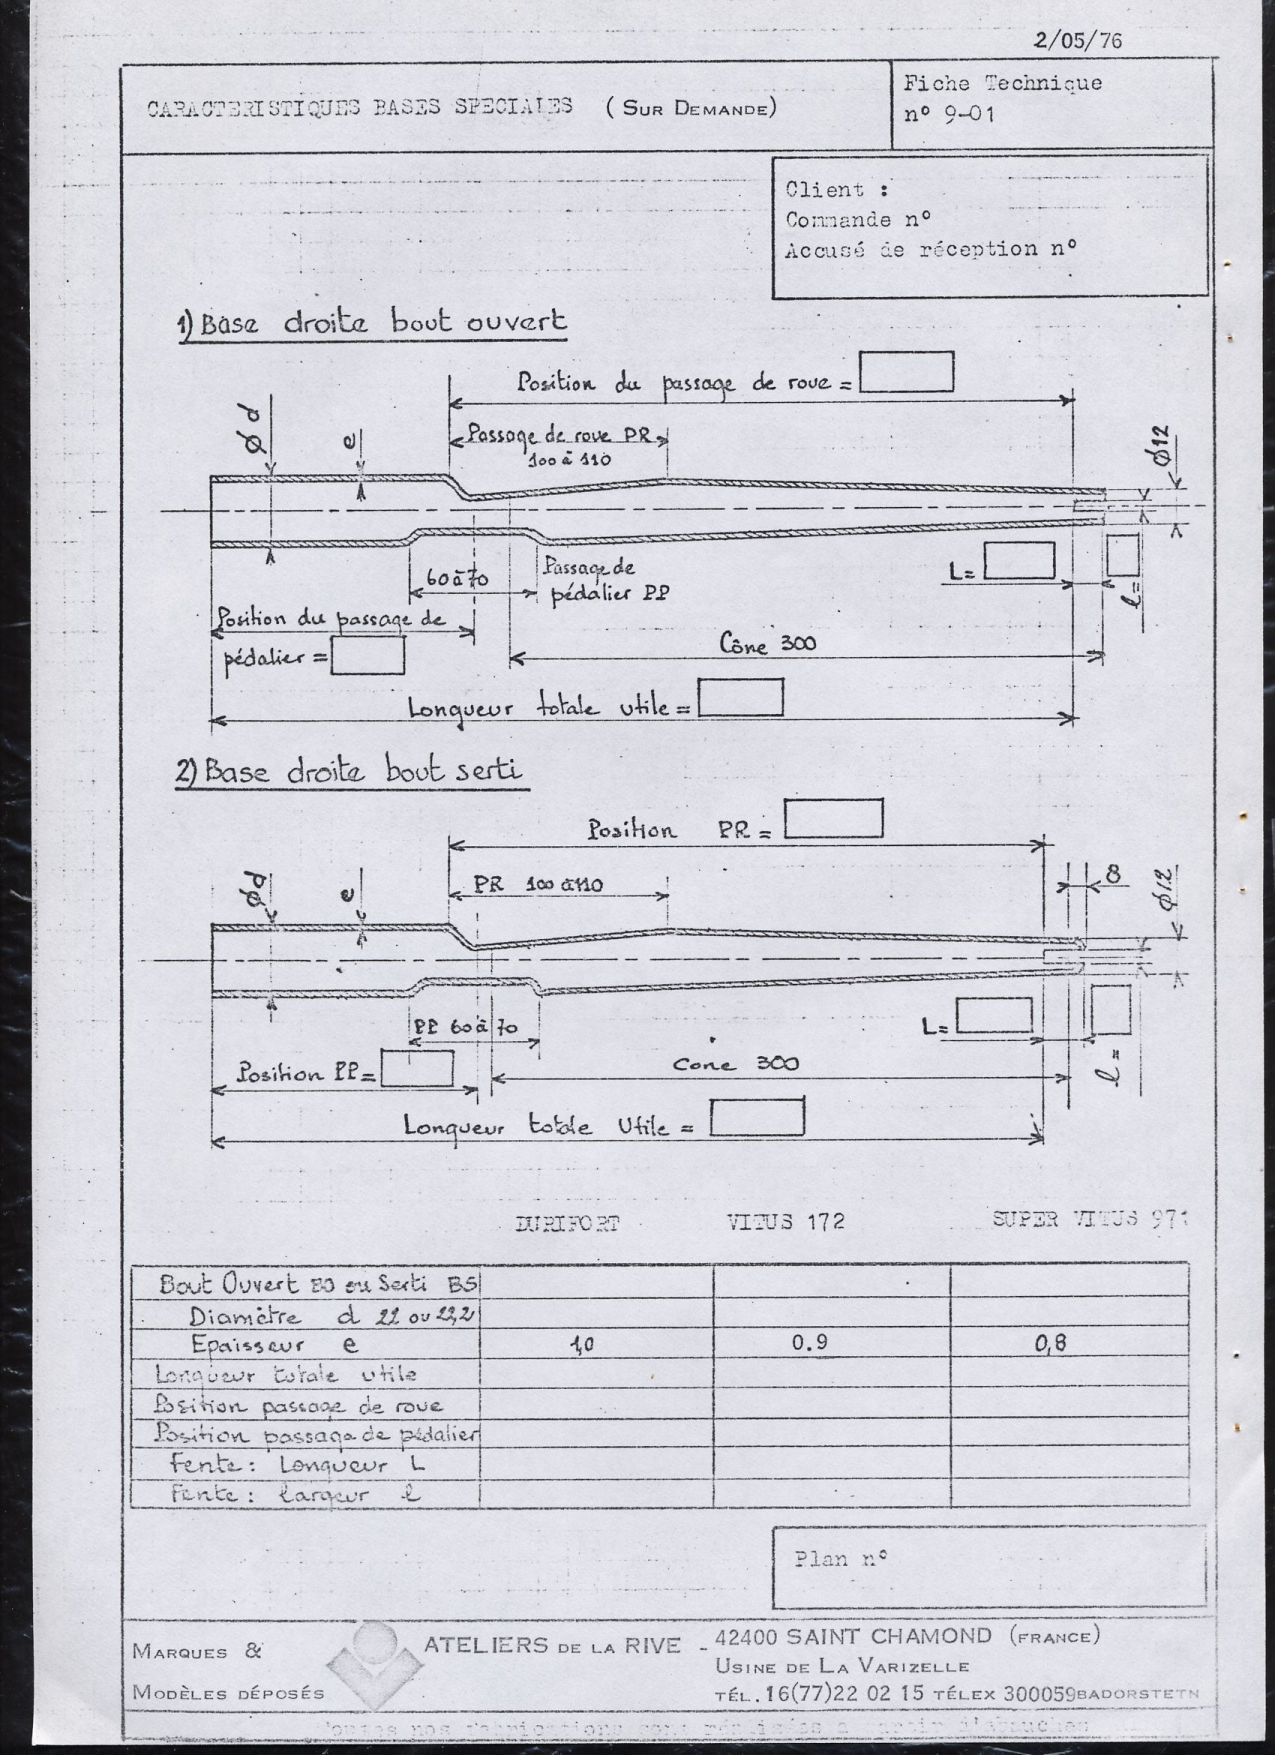 2/05/76
CARACTERISTIQUES BASES SPECIALES (SUR DEMANDE)
Fiche Technique
n° 9-01
Client :
Commande n°
Accusé de réception n°
1) Base droite bout ouvert
Position du passage de roue =
Passage de roue PR
100 à 110
Ø d
e
Ø12
60 à 70
Passage de
pédalier PP
L=
l=
Position du passage de
pédalier =
Cône 300
Longueur totale utile =
2) Base droite bout serti
Position PR =
PR 100 à 110
8
Ød
e
Ø12
PP 60 à 70
L=
l=
Position PP =
Cone 300
Longueur totale Utile =
DURIFORT VITUS 172 SUPER VITUS 971
Bout Ouvert BO ou Serti BS
Diamètre d 22 ou 22,2
Epaisseur e 1,0 0.9 0,8
Longueur totale utile
Position passage de roue
Position passage de pédalier
Fente : Longueur L
Fente : largeur l
Plan n°
MARQUES &
MODÈLES DÉPOSÉS
ATELIERS DE LA RIVE - 42400 SAINT CHAMOND (FRANCE)
USINE DE LA VARIZELLE
TÉL. 16(77)22 02 15 TÉLEX 300059BADORSTETN
Toutes nos fabrications sont réalisées à partir d'ébauches